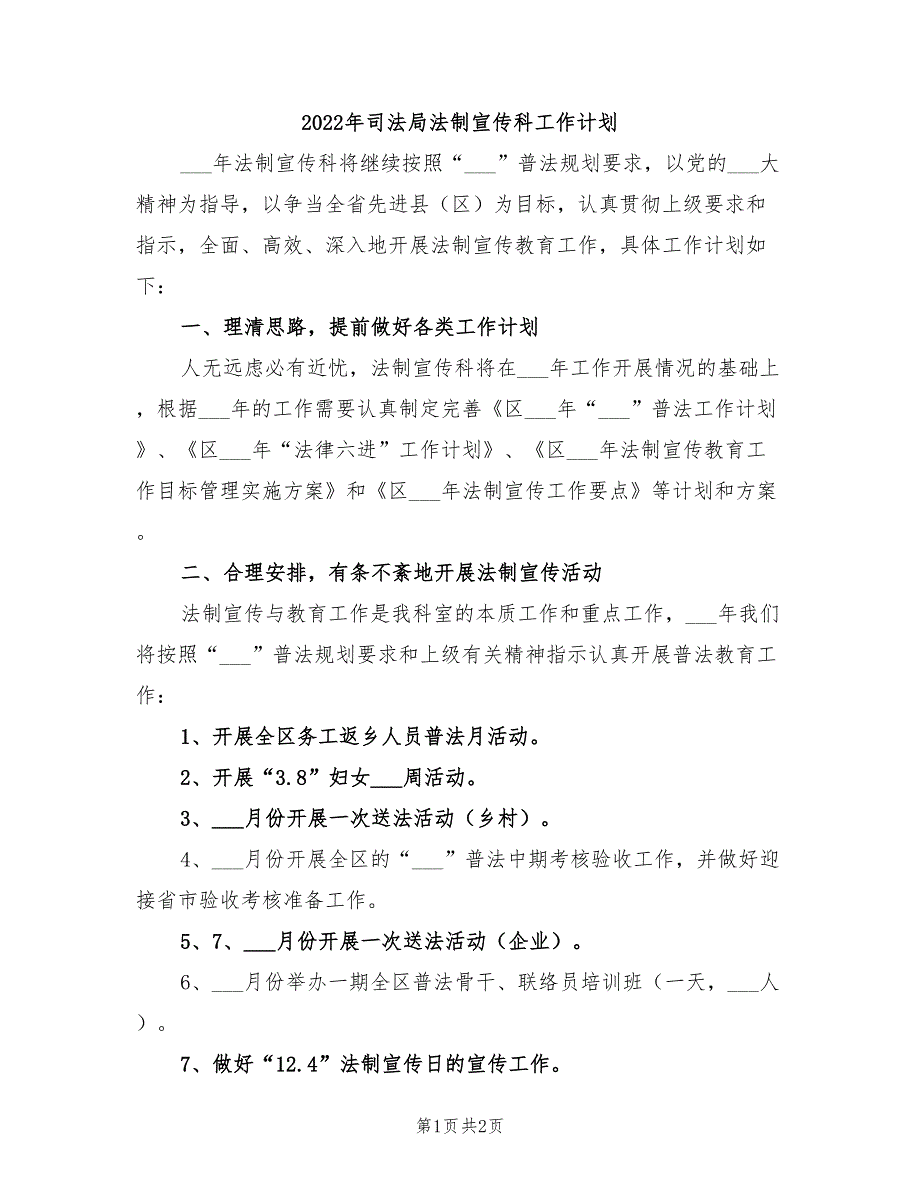 2022年司法局法制宣传科工作计划
___年法制宣传科将继续按照“___”普法规划要求，以党的___大
精神为指导，以争当全省先进县（区）为目标，认真贯彻上级要求和
指示，全面、高效、深入地开展法制宣传教育工作，具体工作计划如
下：
一、理清思路，提前做好各类工作计划
人无远虑必有近忧，法制宣传科将在___年工作开展情况的基础上
，根据___年的工作需要认真制定完善《区___年“___”普法工作计划
》、《区___年“法律六进”工作计划》、《区___年法制宣传教育工
作目标管理实施方案》和《区___年法制宣传工作要点》等计划和方案
。
二、合理安排，有条不紊地开展法制宣传活动
法制宣传与教育工作是我科室的本质工作和重点工作，___年我们
将按照“___”普法规划要求和上级有关精神指示认真开展普法教育工
作：
1、开展全区务工返乡人员普法月活动。
2、开展“3.8”妇女___周活动。
3、___月份开展一次送法活动（乡村）。
4、___月份开展全区的“___”普法中期考核验收工作，并做好迎
接省市验收考核准备工作。
5、7、___月份开展一次送法活动（企业）。
6、___月份举办一期全区普法骨干、联络员培训班（一天，___人
）。
7、做好“12.4”法制宣传日的宣传工作。
第1页 共2页